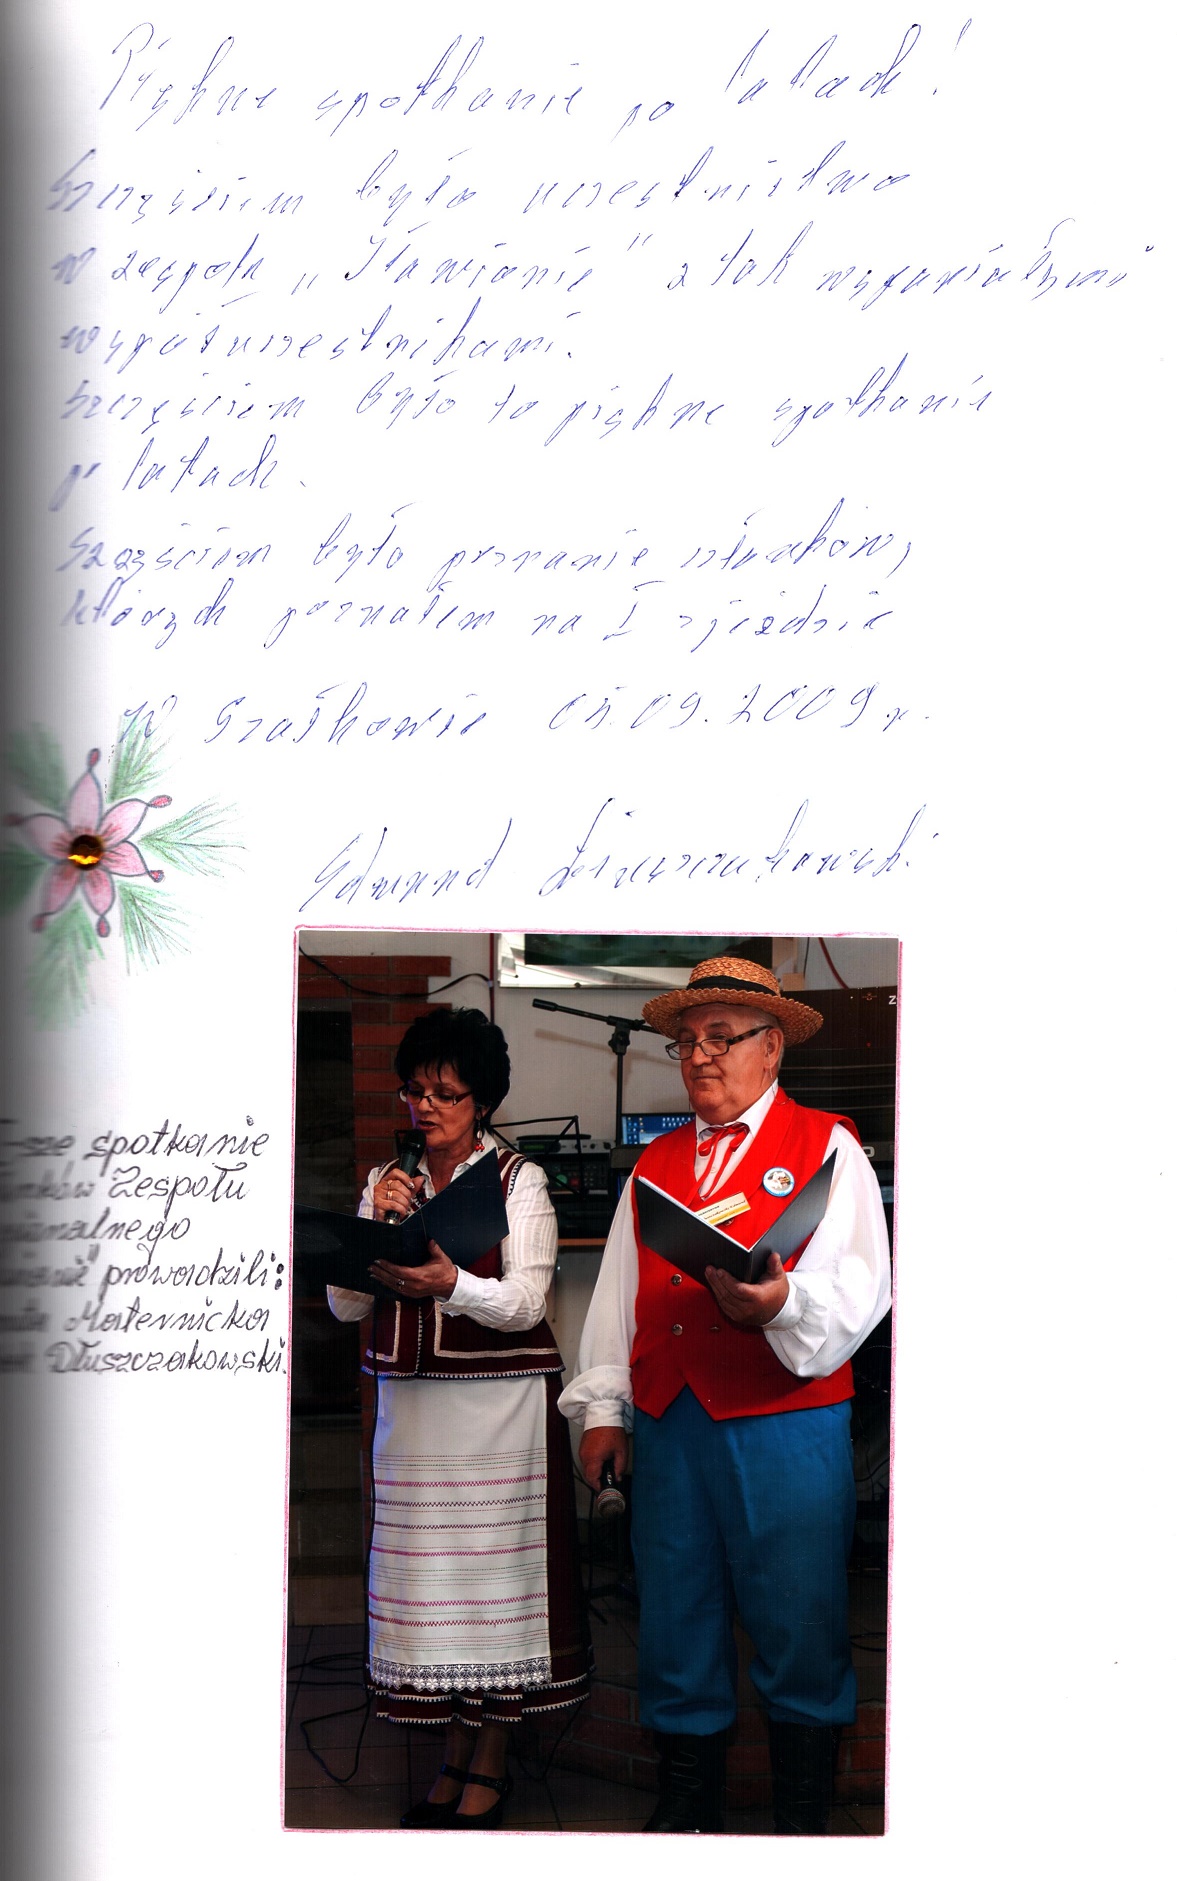 Piękne spotkanie po latach!
Szczęściem było uczestnictwo
w zespole „Iławianie" z tak wspaniałymi
współuczestnikami.
Szczęściem było to piękne spotkanie
po latach.
Szczęściem było poznanie
których poznałem na I zjeździe
W Szałkowie 05.09.2009 r.
Edmund
-sze spotkanie
Zespołu
prowadzili:
Maternicka
Dłuszczakowski.